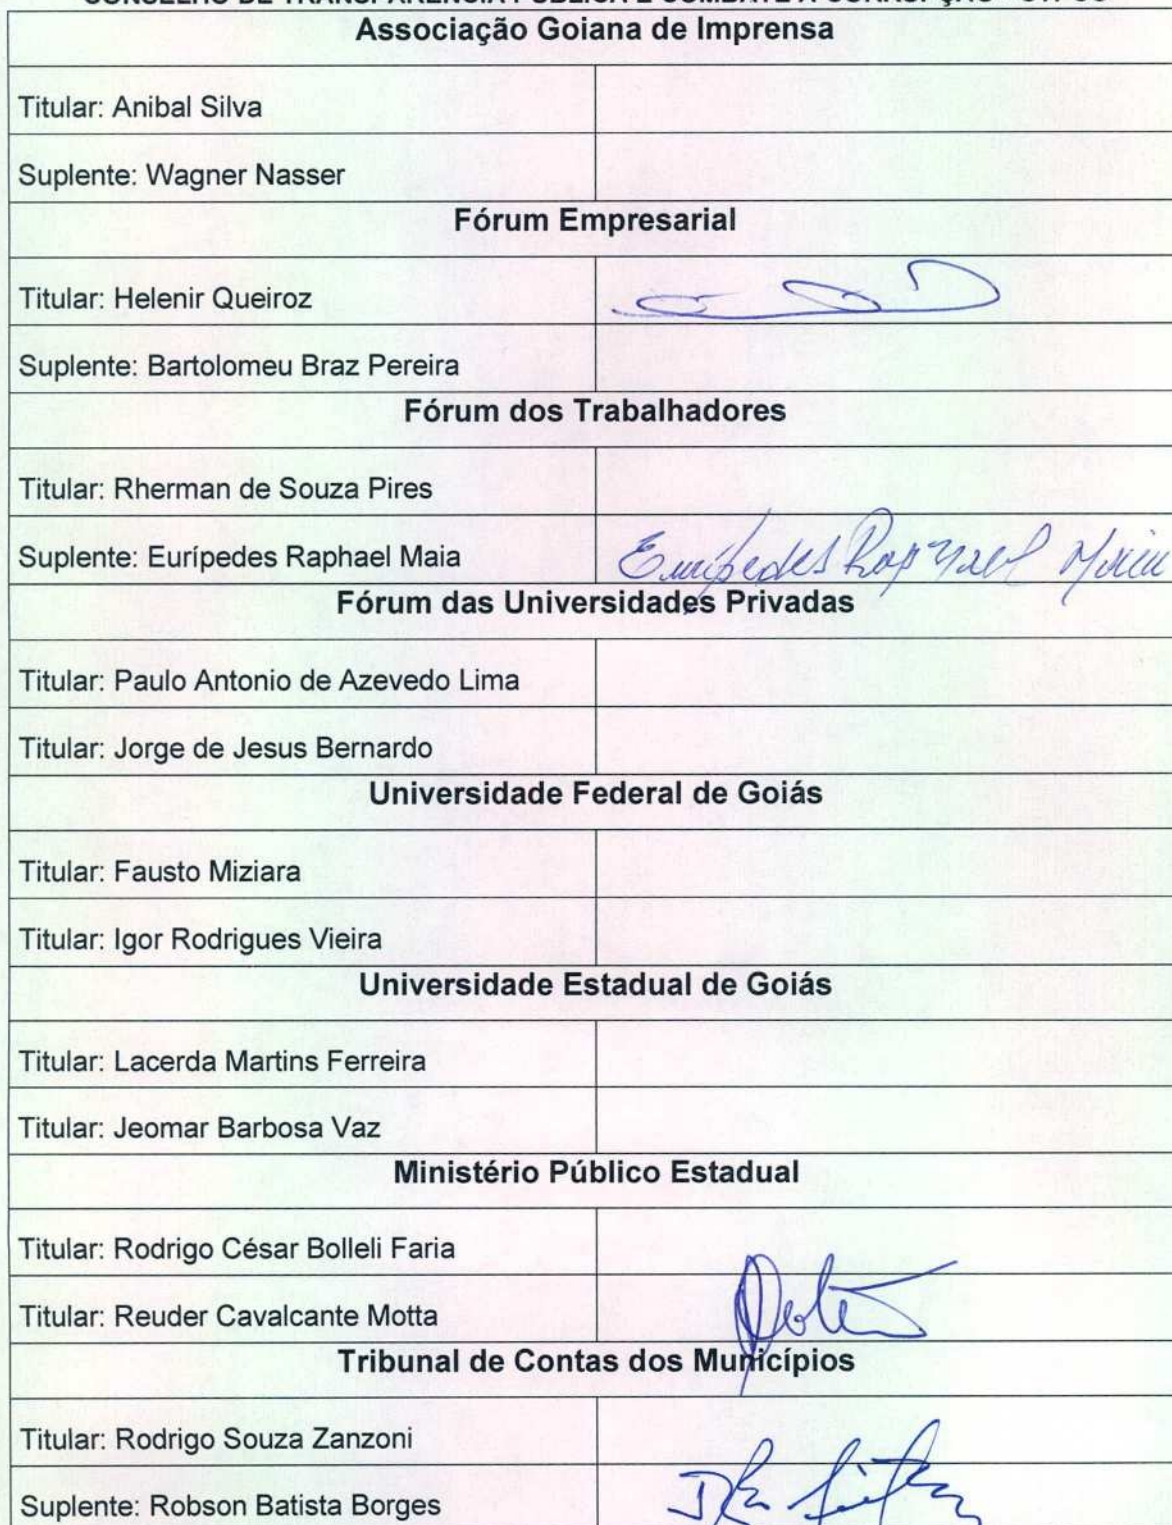 Associação Goiana de Imprensa
Titular: Anibal Silva
Suplente: Wagner Nasser
Fórum Empresarial
Titular: Helenir Queiroz
Suplente: Bartolomeu Braz Pereira
Fórum dos Trabalhadores
Titular: Rherman de Souza Pires
Suplente: Eurípedes Raphael Maia
Eurípedes Raphael Maia
Fórum das Universidades Privadas
Titular: Paulo Antonio de Azevedo Lima
Titular: Jorge de Jesus Bernardo
Universidade Federal de Goiás
Titular: Fausto Miziara
Titular: Igor Rodrigues Vieira
Universidade Estadual de Goiás
Titular: Lacerda Martins Ferreira
Titular: Jeomar Barbosa Vaz
Ministério Público Estadual
Titular: Rodrigo César Bolleli Faria
Titular: Reuder Cavalcante Motta
Tribunal de Contas dos Municípios
Titular: Rodrigo Souza Zanzoni
Suplente: Robson Batista Borges